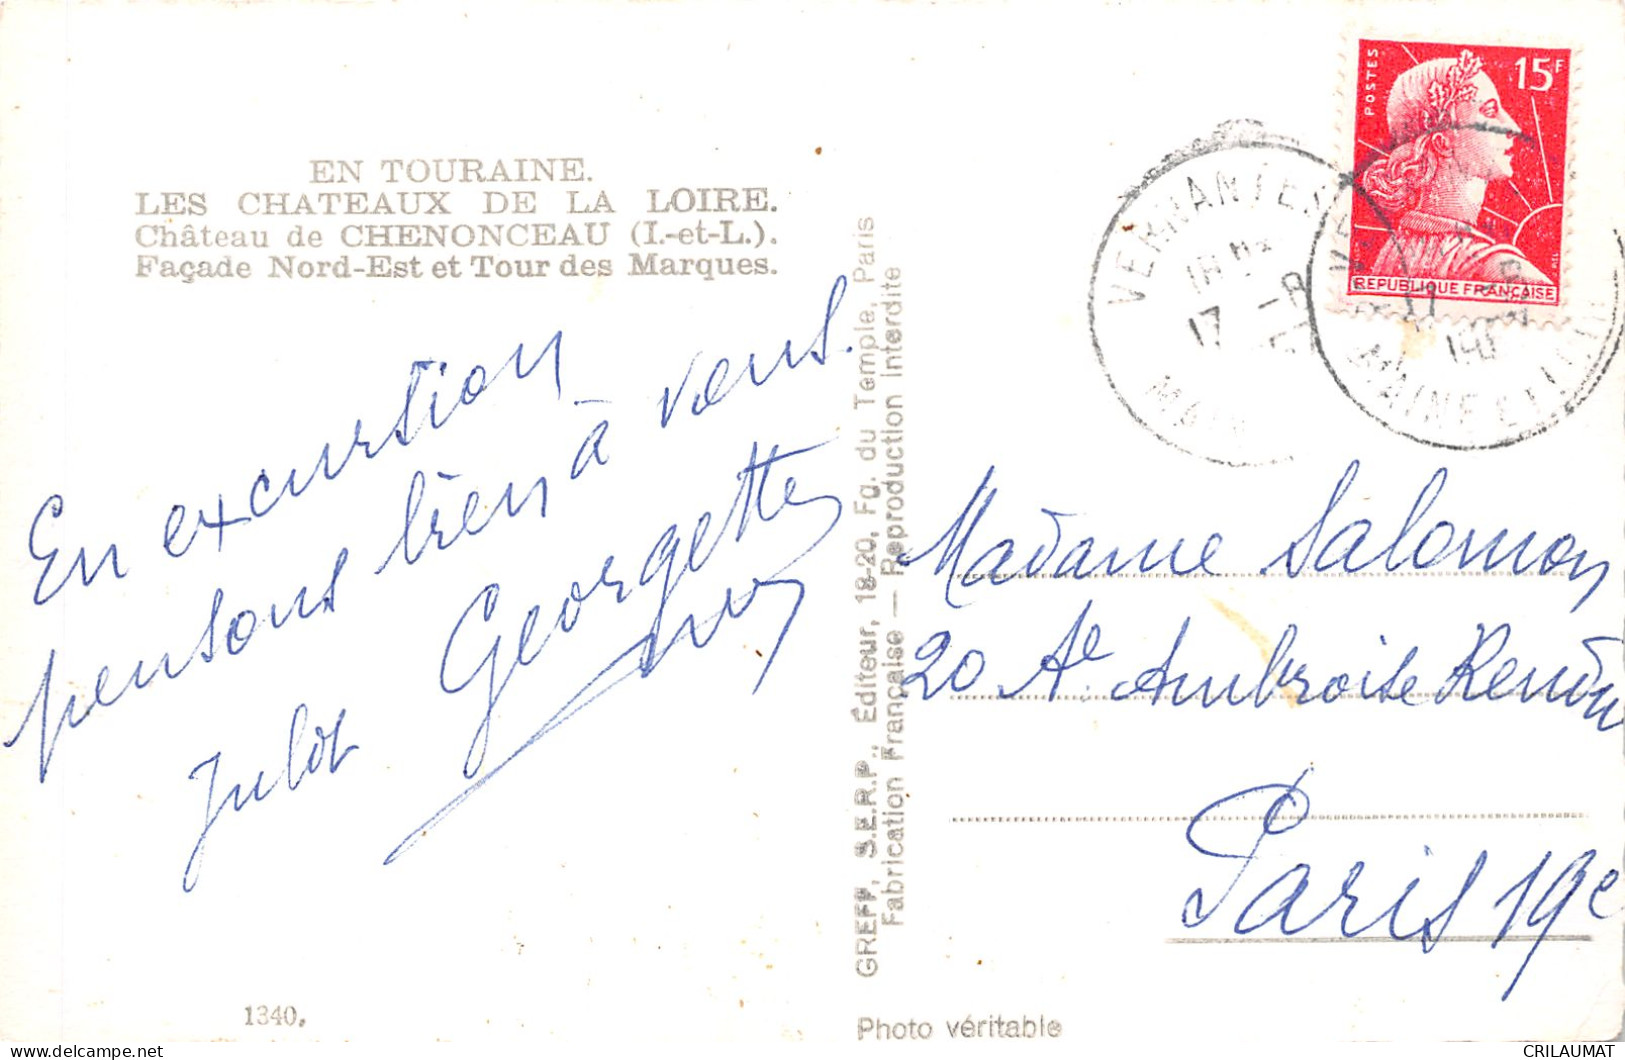 EN TOURAINE.
LES CHATEAUX DE LA LOIRE.
Château de CHENONCEAU (I.-et-L.).
Façade Nord-Est et Tour des Marques.
En excurtion
pensons bien à vous.
Julot Georgette
1340.
GREFF, S.E.R.P., Éditeur, 18-20, Fg. du Temple, Paris
Fabrication Française — Reproduction Interdite
Photo véritable
POSTES
15F
REPUBLIQUE FRANÇAISE
VERNANTES
18H
17 -8
MAINE ET LOIRE
Madame Salomon
20 Ae Ambroise Rendu
Paris 19e
CRILAUMAT
delcampe.net